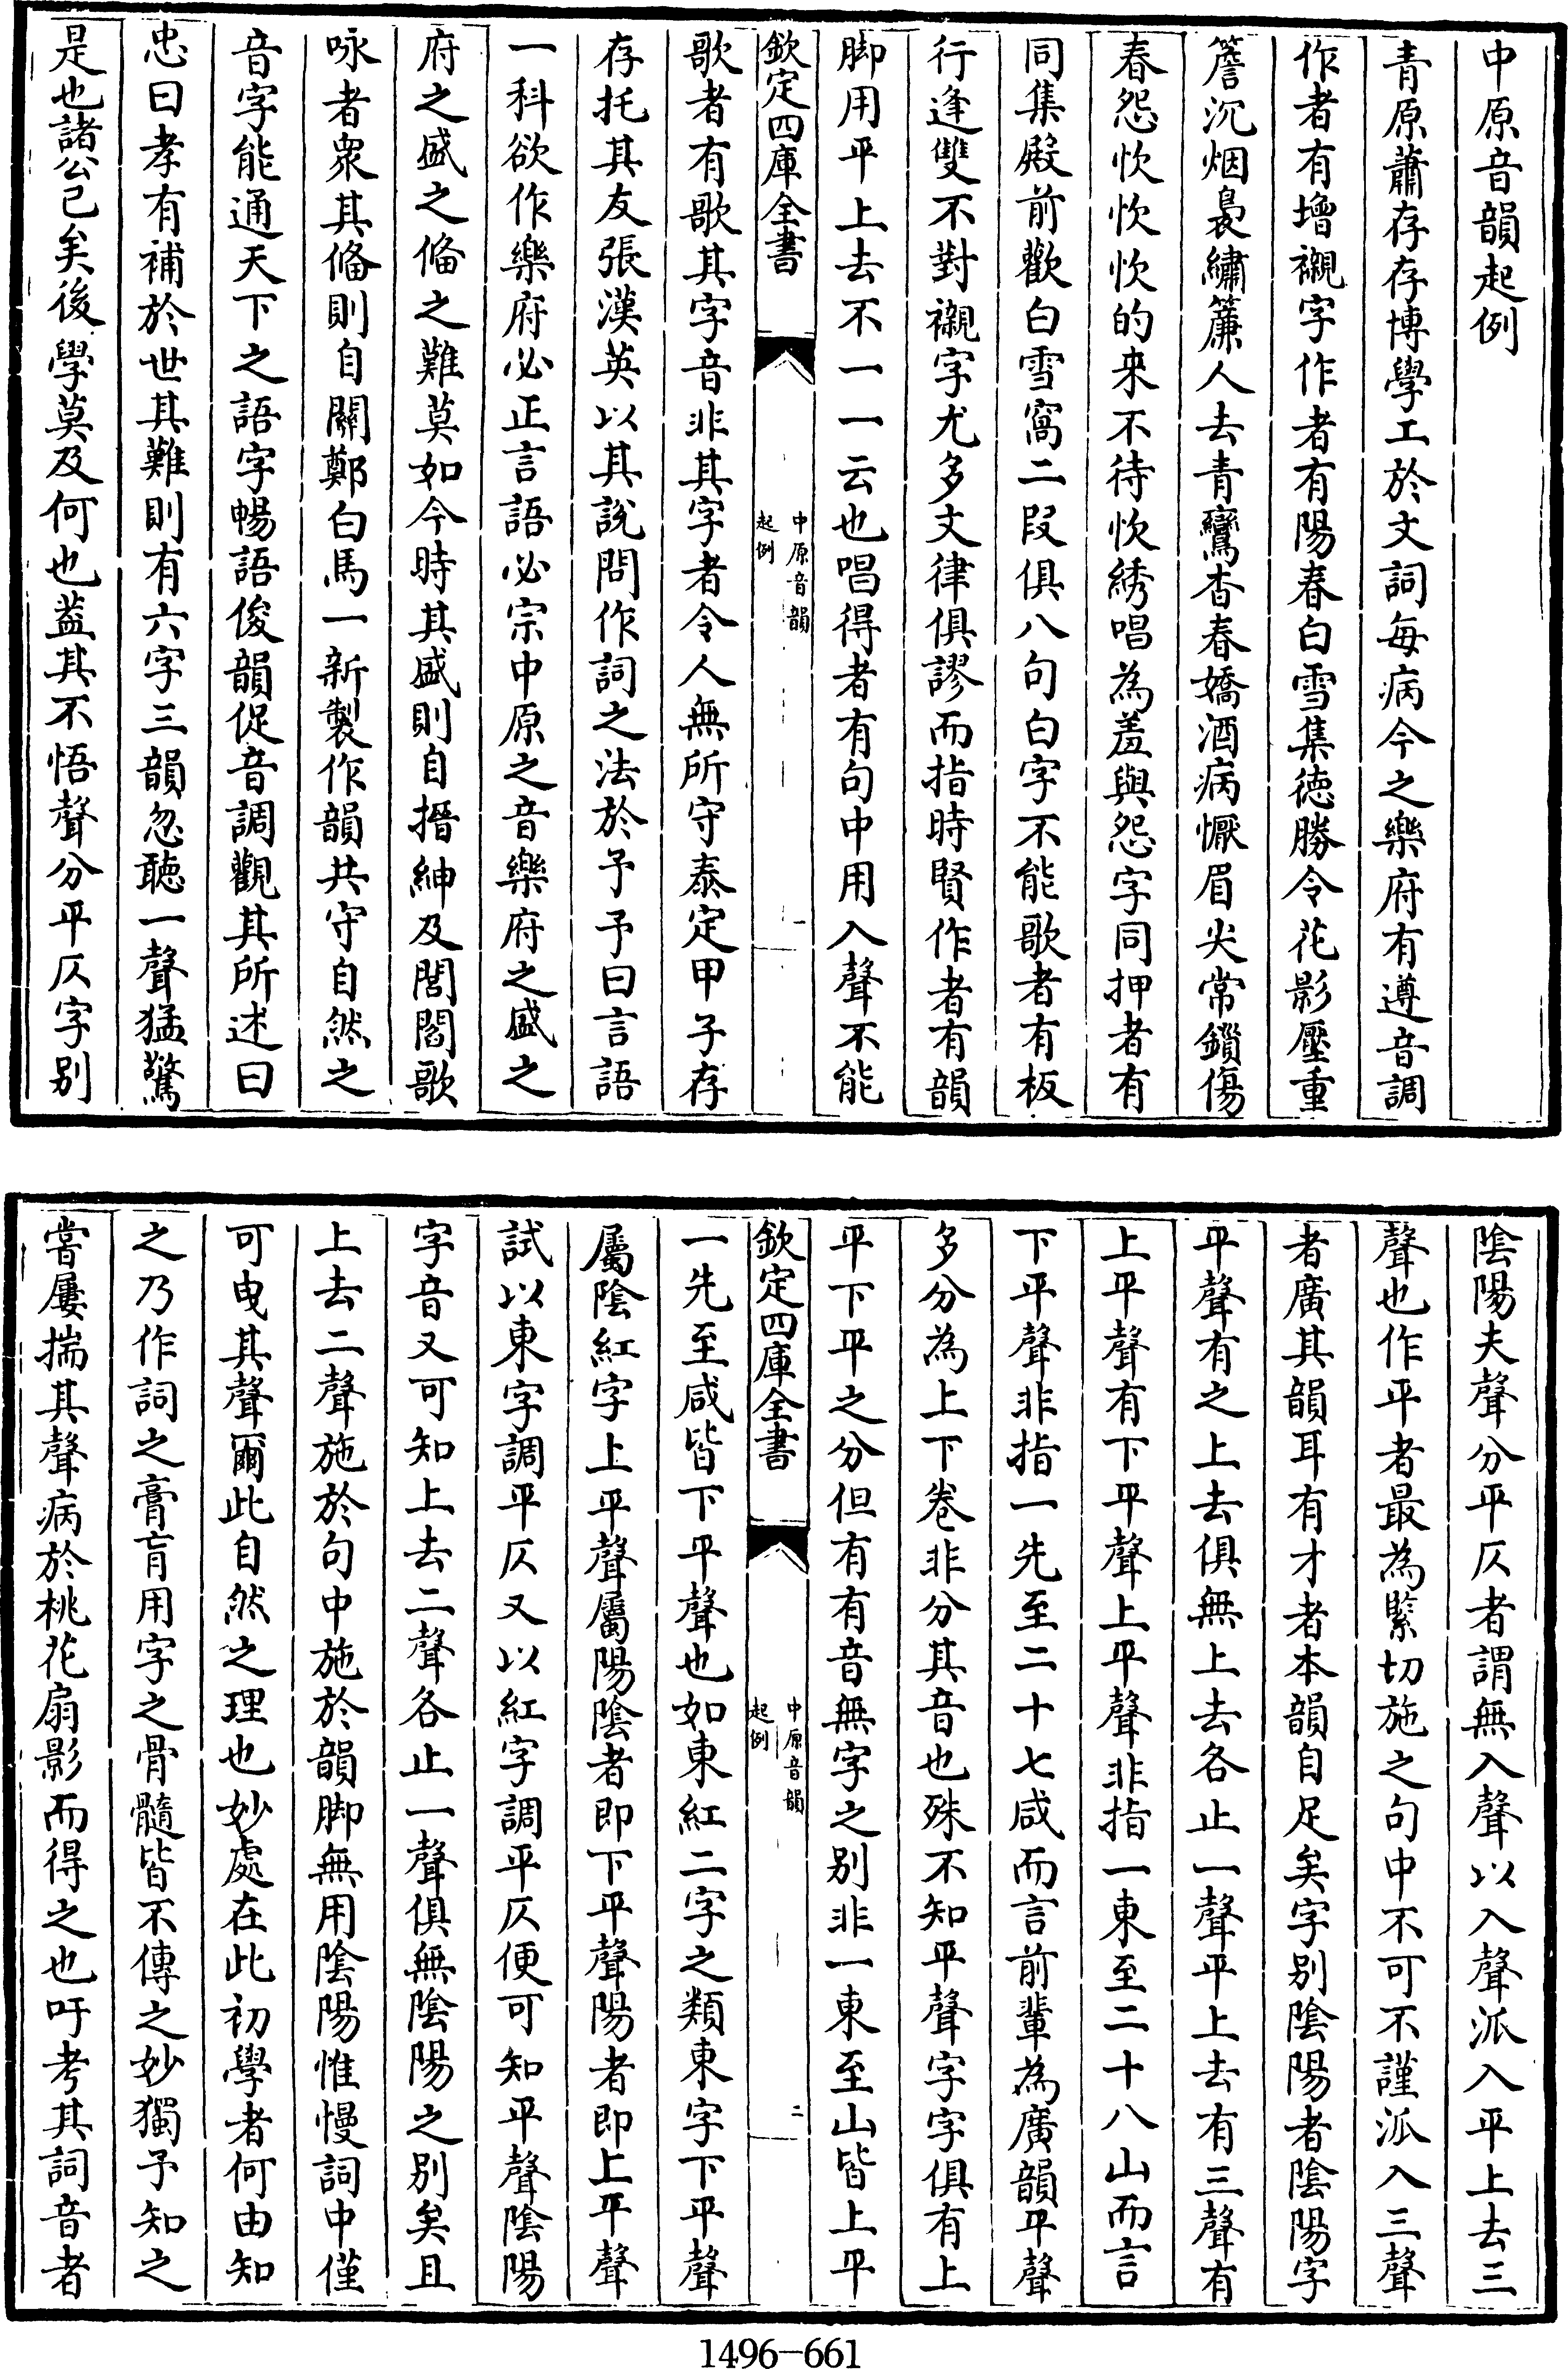 中原音韻起例
青原蕭存存博學工於文詞每病今之樂府有遵音調
作者有增襯字作者有陽春白雪集徳勝令花影壓重
簷沉烟裊繡簾人去青鸞杳春嬌酒病懨眉尖常鎖傷
春怨忺忺忺的来不待忺綉唱為羞與怨字同押者有
同集殿前歡白雪窩二段俱八句白字不能歌者有板
行逢雙不對襯字尤多文律俱謬而指時賢作者有韻
脚用平上去不一一云也唱得者有句中用入聲不能
欽定四庫全書
中原音韻
起例
一
歌者有歌其字音非其字者令人無所守泰定甲子存
存托其友張漢英以其說問作詞之法於予予曰言語
一科欲作樂府必正言語必宗中原之音樂府之盛之
府之盛之偹之難莫如今時其盛則自搢紳及閭閻歌
咏者衆其偹則自關鄭白馬一新製作韻共守自然之
音字能通天下之語字暢語俊韻促音調觀其所述曰
忠曰孝有補於世其難則有六字三韻忽聴一聲猛驚
是也諸公已矣後學莫及何也葢其不悟聲分平仄字别
陰陽夫聲分平仄者謂無入聲以入聲派入平上去三
聲也作平者最為緊切施之句中不可不謹派入三聲
者廣其韻耳有才者本韻自足矣字别陰陽者陰陽字
平聲有之上去俱無上去各止一聲平上去有三聲有
上平聲有下平聲上平聲非指一東至二十八山而言
下平聲非指一先至二十七咸而言前輩為廣韻平聲
多分為上下卷非分其音也殊不知平聲字字俱有上
平下平之分但有有音無字之别非一東至山皆上平
欽定四庫全書
中原音韻
起例
二
一先至咸皆下平聲也如東紅二字之類東字下平聲
屬陰紅字上平聲屬陽陰者即下平聲陽者即上平聲
試以東字調平仄又以紅字調平仄便可知平聲陰陽
字音又可知上去二聲各止一聲俱無陰陽之别矣且
上去二聲施於句中施於韻脚無用陰陽惟慢詞中僅
可曳其聲爾此自然之理也妙處在此初學者何由知
之乃作詞之膏肓用字之骨髓皆不傳之妙獨予知之
嘗屢揣其聲病於桃花扇影而得之也吁考其詞音者
1496-661